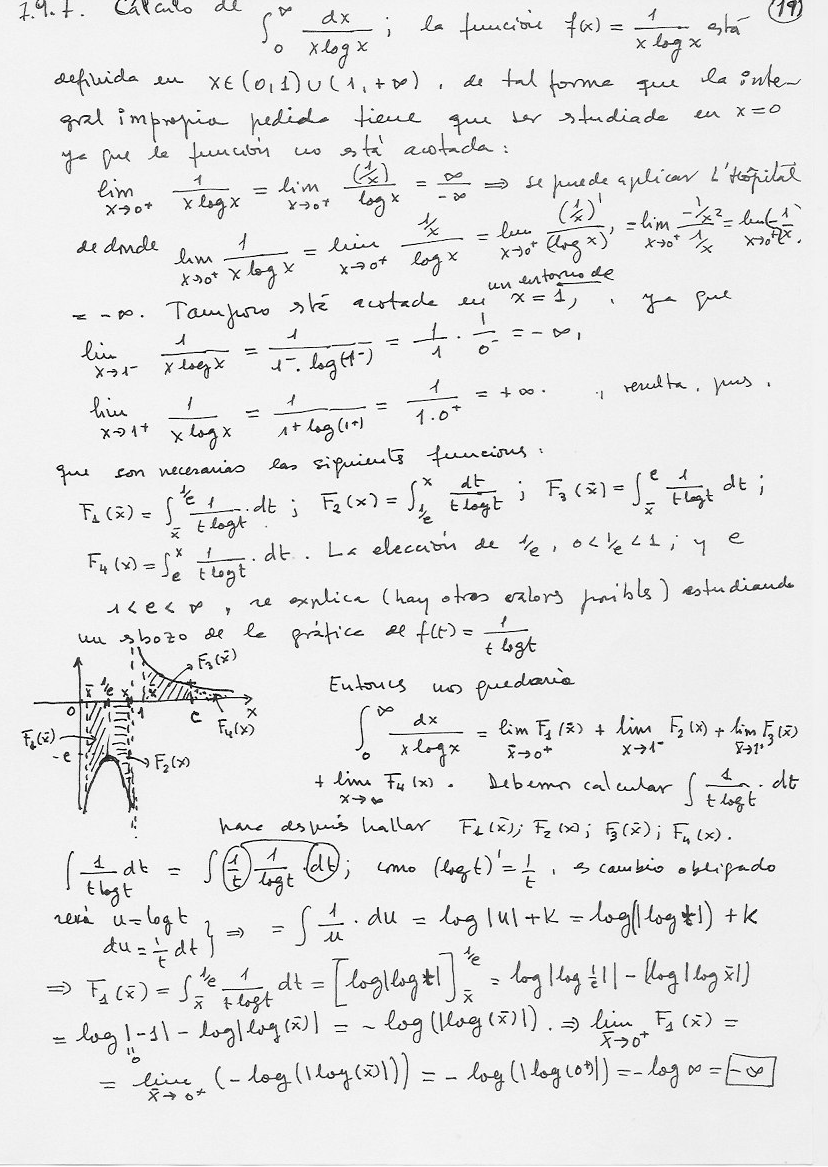 7.9.7. Cálculo de ∫₀^∞ dx/(x log x) ; la función f(x) = 1/(x log x) está (19)
definida en x∈(0,1)∪(1,+∞), de tal forma que la inte-
gral impropia pedida tiene que ser estudiada en x=0
ya que la función no está acotada:
lim_{x→0⁺} 1/(x log x) = lim_{x→0⁺} (1/x)/(log x) = ∞/-∞ ⇒ se puede aplicar L'Hôpital
de donde lim_{x→0⁺} 1/(x log x) = lim_{x→0⁺} (1/x)/(log x) = lim_{x→0⁺} (1/x)'/(log x)' = lim_{x→0⁺} (-1/x²)/(1/x) = lim_{x→0⁺} (-1/x).
= -∞. Tampoco está acotada en un entorno de x=1, ya que
lim_{x→1⁻} 1/(x log x) = 1/(1⁻. log(1⁻)) = 1/1 · 1/0⁻ = -∞,
lim_{x→1⁺} 1/(x log x) = 1/(1⁺ log(1⁺)) = 1/(1.0⁺) = +∞. , resulta, pues,
que son necesarias las siguientes funciones:
F₁(x̄) = ∫_{x̄}^{1/e} 1/(t log t) · dt ; F₂(x) = ∫_{1/e}^{x} dt/(t log t) ; F₃(x̄) = ∫_{x̄}^{e} 1/(t log t) dt ;
F₄(x) = ∫_{e}^{x} 1/(t log t) · dt . La elección de 1/e, 0<1/e<1 ; y e
1<e<∞, se explica (hay otros valores posibles) estudiando
un esbozo de la gráfica de f(t) = 1/(t log t)
F₃(x̄)
0 x̄ 1/e x 1 x̄ e x
F₄(x)
F₁(x̄)
-e
F₂(x)
Entonces nos quedaría
∫₀^∞ dx/(x log x) = lim_{x̄→0⁺} F₁(x̄) + lim_{x→1⁻} F₂(x) + lim_{x̄→1⁺} F₃(x̄)
+ lim_{x→∞} F₄(x). Debemos calcular ∫ 1/(t log t) · dt
para después hallar F₁(x̄); F₂(x); F₃(x̄); F₄(x).
∫ 1/(t log t) dt = ∫ (1/t) 1/(log t) · (dt) ; como (log t)' = 1/t, es cambio obligado
será u = log t
du = 1/t dt } ⇒ = ∫ 1/u · du = log|u| + K = log(|log t|) + K
⇒ F₁(x̄) = ∫_{x̄}^{1/e} 1/(t log t) dt = [log|log t|]_{x̄}^{1/e} = log|log 1/e|| - (log|log x̄|)
= log|-1| - log|log(x̄)| = -log(|log(x̄)|). ⇒ lim_{x̄→0⁺} F₁(x̄) =
"
0
= lim_{x̄→0⁺} (-log(|log(x̄)|)) = -log(|log(0⁺)|) = -log ∞ = -∞